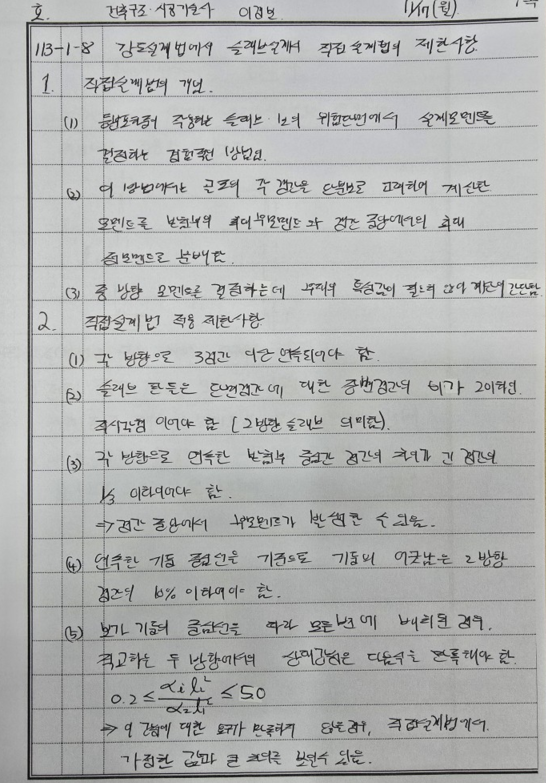 호. 건축구조·시공기술사 이경빈 11/17(월)
113-1-8 강도설계법에서 슬래브설계시 직접설계법의 제한사항
1. 직접설계법의 개념.
(1) 등분포하중이 작용하는 슬래브·보의 위험단면에서 설계모멘트를
결정하는 방법임.
(2) 이 방법에서는 각 경간을 단순보로 고려하여 계산한
모멘트를 받침부의 최대 부모멘트과 경간 중앙에서의 최대
정모멘트로 분배함.
(3) 총 방향 모멘트를 결정하는데 부재의 특성값이 필요치 않아 계산이 간단함
2. 직접설계법 적용 제한사항
(1) 각 방향으로 3경간 이상 연속되어야 함.
(2) 슬래브 판들은 단변경간에 대한 장변경간의 비가 2이하인
직사각형 이어야 함 (2방향 슬래브 의미함).
(3) 각 방향으로 연속한 받침부 중심간 경간의 차이가 긴 경간의
1/3 이하이어야 함.
⇒ 경간 중앙에서 부모멘트가 발생할 수 있음.
(4) 연속한 기둥 중심선을 기준으로 기둥의 어긋남은 그 방향
경간의 10% 이하이어야 함.
(5) 보가 기둥의 중심선을 따라 모든 변에 배치된 경우.
직교하는 두 방향에서의 상대강성은 다음식을 만족해야 함.
0.2 ≤ α₁l₂² / α₂l₁² ≤ 5.0
⇒ 이 강성에 대한 요구가 만족하지 않는경우, 직접설계법에서
가정한 값과 큰 차이를 보일수 있음.